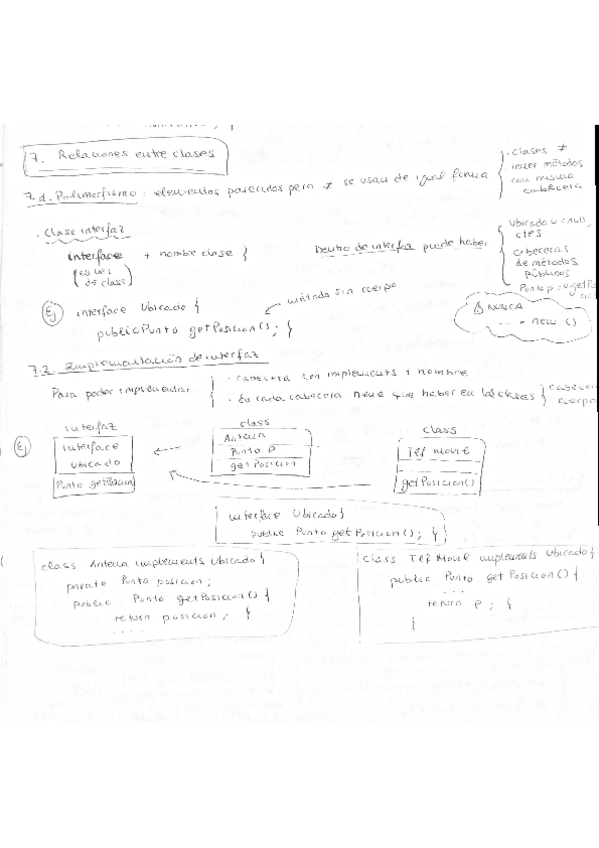 7. Relaciones entre clases
7.1. Polimorfismo: elementos parecidos pero ≠ se usan de igual forma { · clases ≠
tener métodos
con misma
cabecera
· Clase interfaz
interface + nombre clase {
(es vez
de class)
Dentro de interfaz puede haber {
cabeceras
de métodos
públicos
⚠ NUNCA
... = new ()
Ej interface Ubicado {
public Punto getPosicion(); {
método sin cuerpo
7.2. Implementación de interfaz
Para poder implementar { · cabecera con implements + nombre
· En cada cabecera tiene que haber en las clases {
Ej
interfaz
interface
Ubicado
Punto getPosicion
class
Antena
Punto P
getPosicion
class
Telf movil
getPosicion()
interface Ubicado {
public Punto getPosicion(); {
class Antena implements Ubicado {
private Punto posicion;
public Punto getPosicion() {
return posicion; {
....
class Telf Movil implements Ubicado {
public Punto getPosicion() {
...
return p; {
{